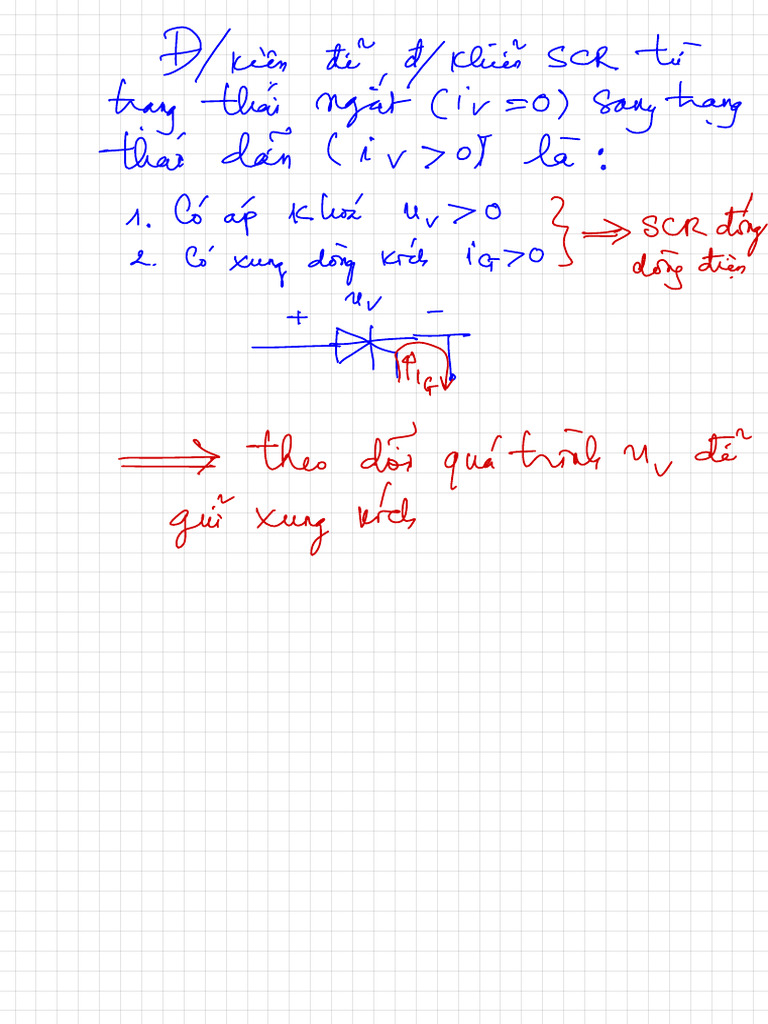 Đ/kiện để đ/khiển SCR từ
trạng thái ngắt (iv=0) sang trạng
thái dẫn (iv>0) là:
1. Có áp khoá uv>0
2. Có xung dòng kích iG>0
} => SCR đóng
dòng điện
uv
+ -
iG
=> theo dõi quá trình uv để
gửi xung kích